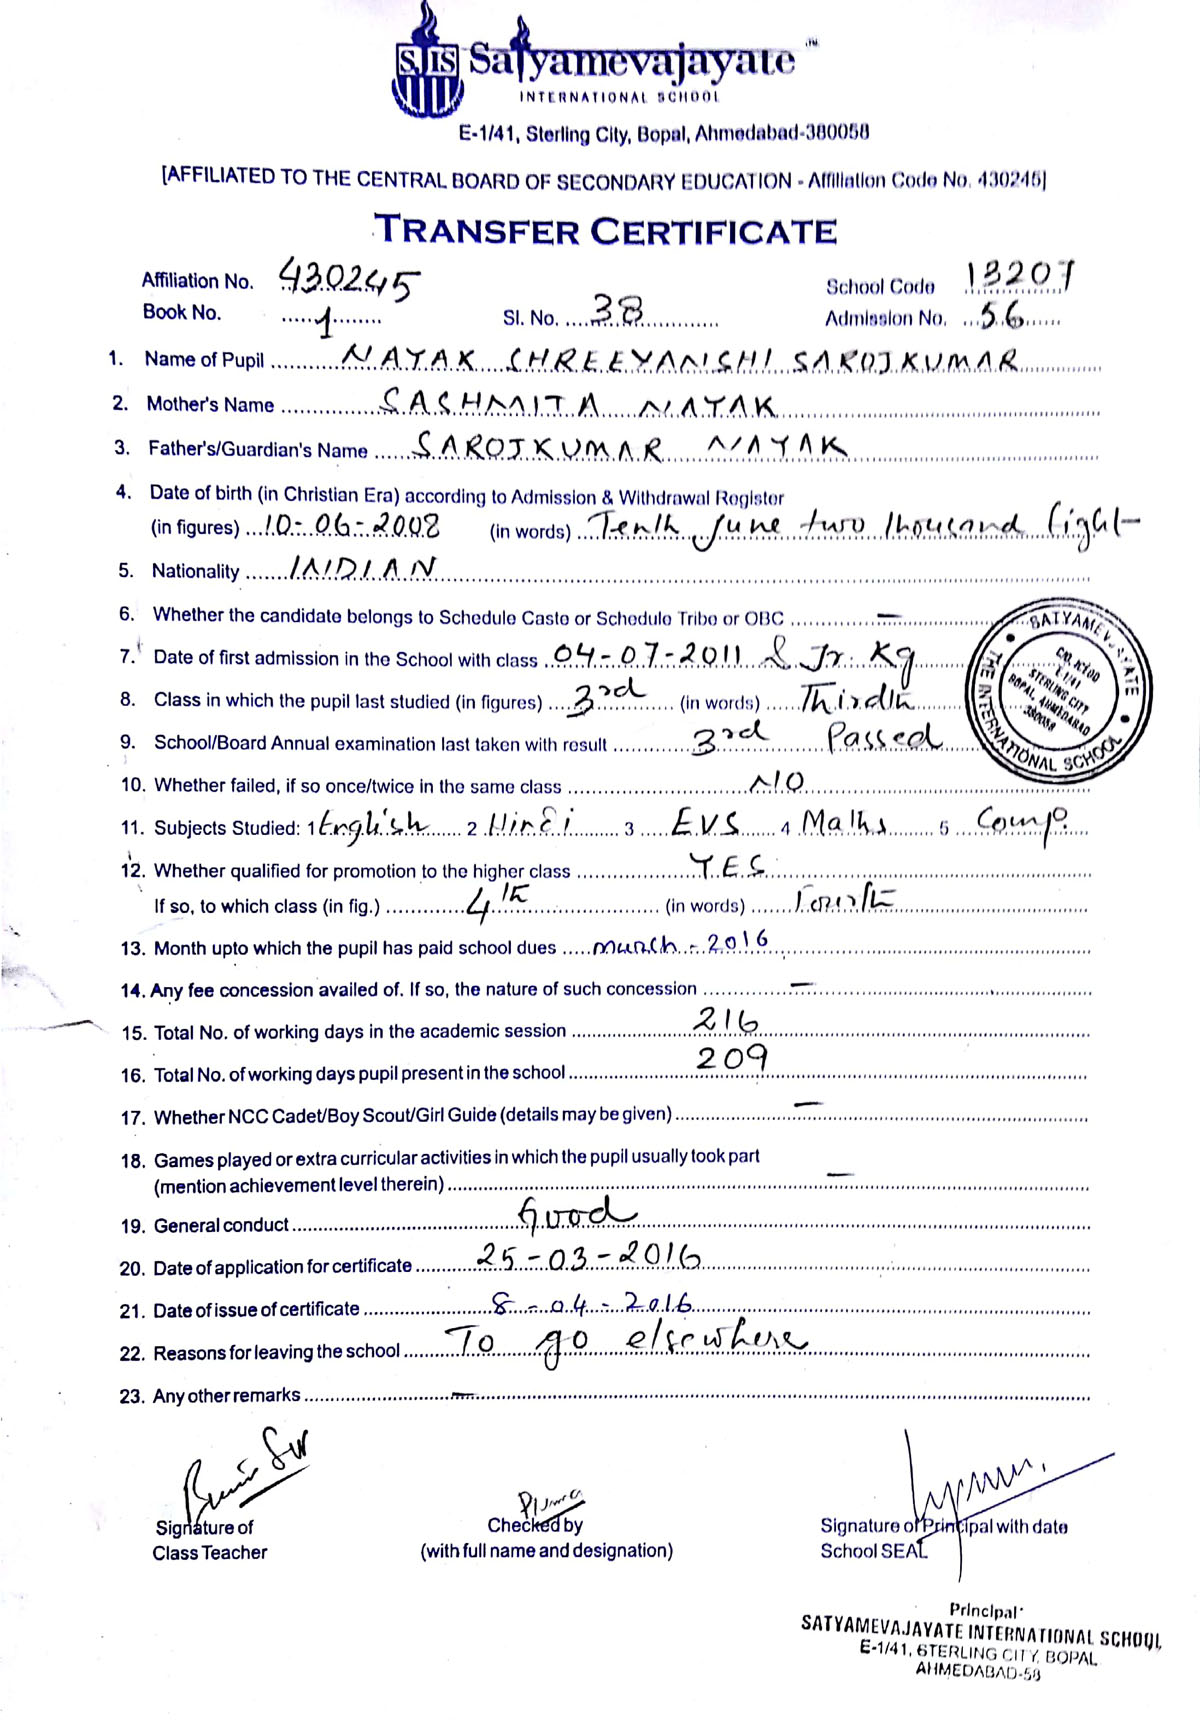 SIS Satyamevajayate TM
INTERNATIONAL SCHOOL
E-1/41, Sterling City, Bopal, Ahmedabad-380058
[AFFILIATED TO THE CENTRAL BOARD OF SECONDARY EDUCATION - Affiliation Code No. 430245]
TRANSFER CERTIFICATE
Affiliation No. 430245 School Code 13207
Book No. 1 Sl. No. 38 Admission No. 56
1. Name of Pupil NAYAK SHREEYANSHI SAROJKUMAR
2. Mother's Name SASHMITA NAYAK
3. Father's/Guardian's Name SAROJKUMAR NAYAK
4. Date of birth (in Christian Era) according to Admission & Withdrawal Register
(in figures) 10-06-2008 (in words) Tenth June two thousand Eight
5. Nationality INDIAN
6. Whether the candidate belongs to Schedule Caste or Schedule Tribe or OBC —
7. Date of first admission in the School with class 04-07-2011 & Jr. Kg
8. Class in which the pupil last studied (in figures) 3rd (in words) Thirdth
9. School/Board Annual examination last taken with result 3rd Passed
THE SATYAMEVJAYATE INTERNATIONAL SCHOOL
E-1/41
STERLING CITY
BOPAL AHMEDABAD
380058
10. Whether failed, if so once/twice in the same class NO
11. Subjects Studied: 1 English 2 Hindi 3 EVS 4 Maths 5 Comp.
12. Whether qualified for promotion to the higher class YES
If so, to which class (in fig.) 4th (in words) Fourth
13. Month upto which the pupil has paid school dues march-2016
14. Any fee concession availed of. If so, the nature of such concession —
15. Total No. of working days in the academic session 216
16. Total No. of working days pupil present in the school 209
17. Whether NCC Cadet/Boy Scout/Girl Guide (details may be given) —
18. Games played or extra curricular activities in which the pupil usually took part
(mention achievement level therein) —
19. General conduct Good
20. Date of application for certificate 25-03-2016
21. Date of issue of certificate 8-04-2016
22. Reasons for leaving the school To go elsewhere
23. Any other remarks —
Signature of Checked by Signature of Principal with date
Class Teacher (with full name and designation) School SEAL
Principal
SATYAMEVAJAYATE INTERNATIONAL SCHOOL
E-1/41, STERLING CITY, BOPAL
AHMEDABAD-58